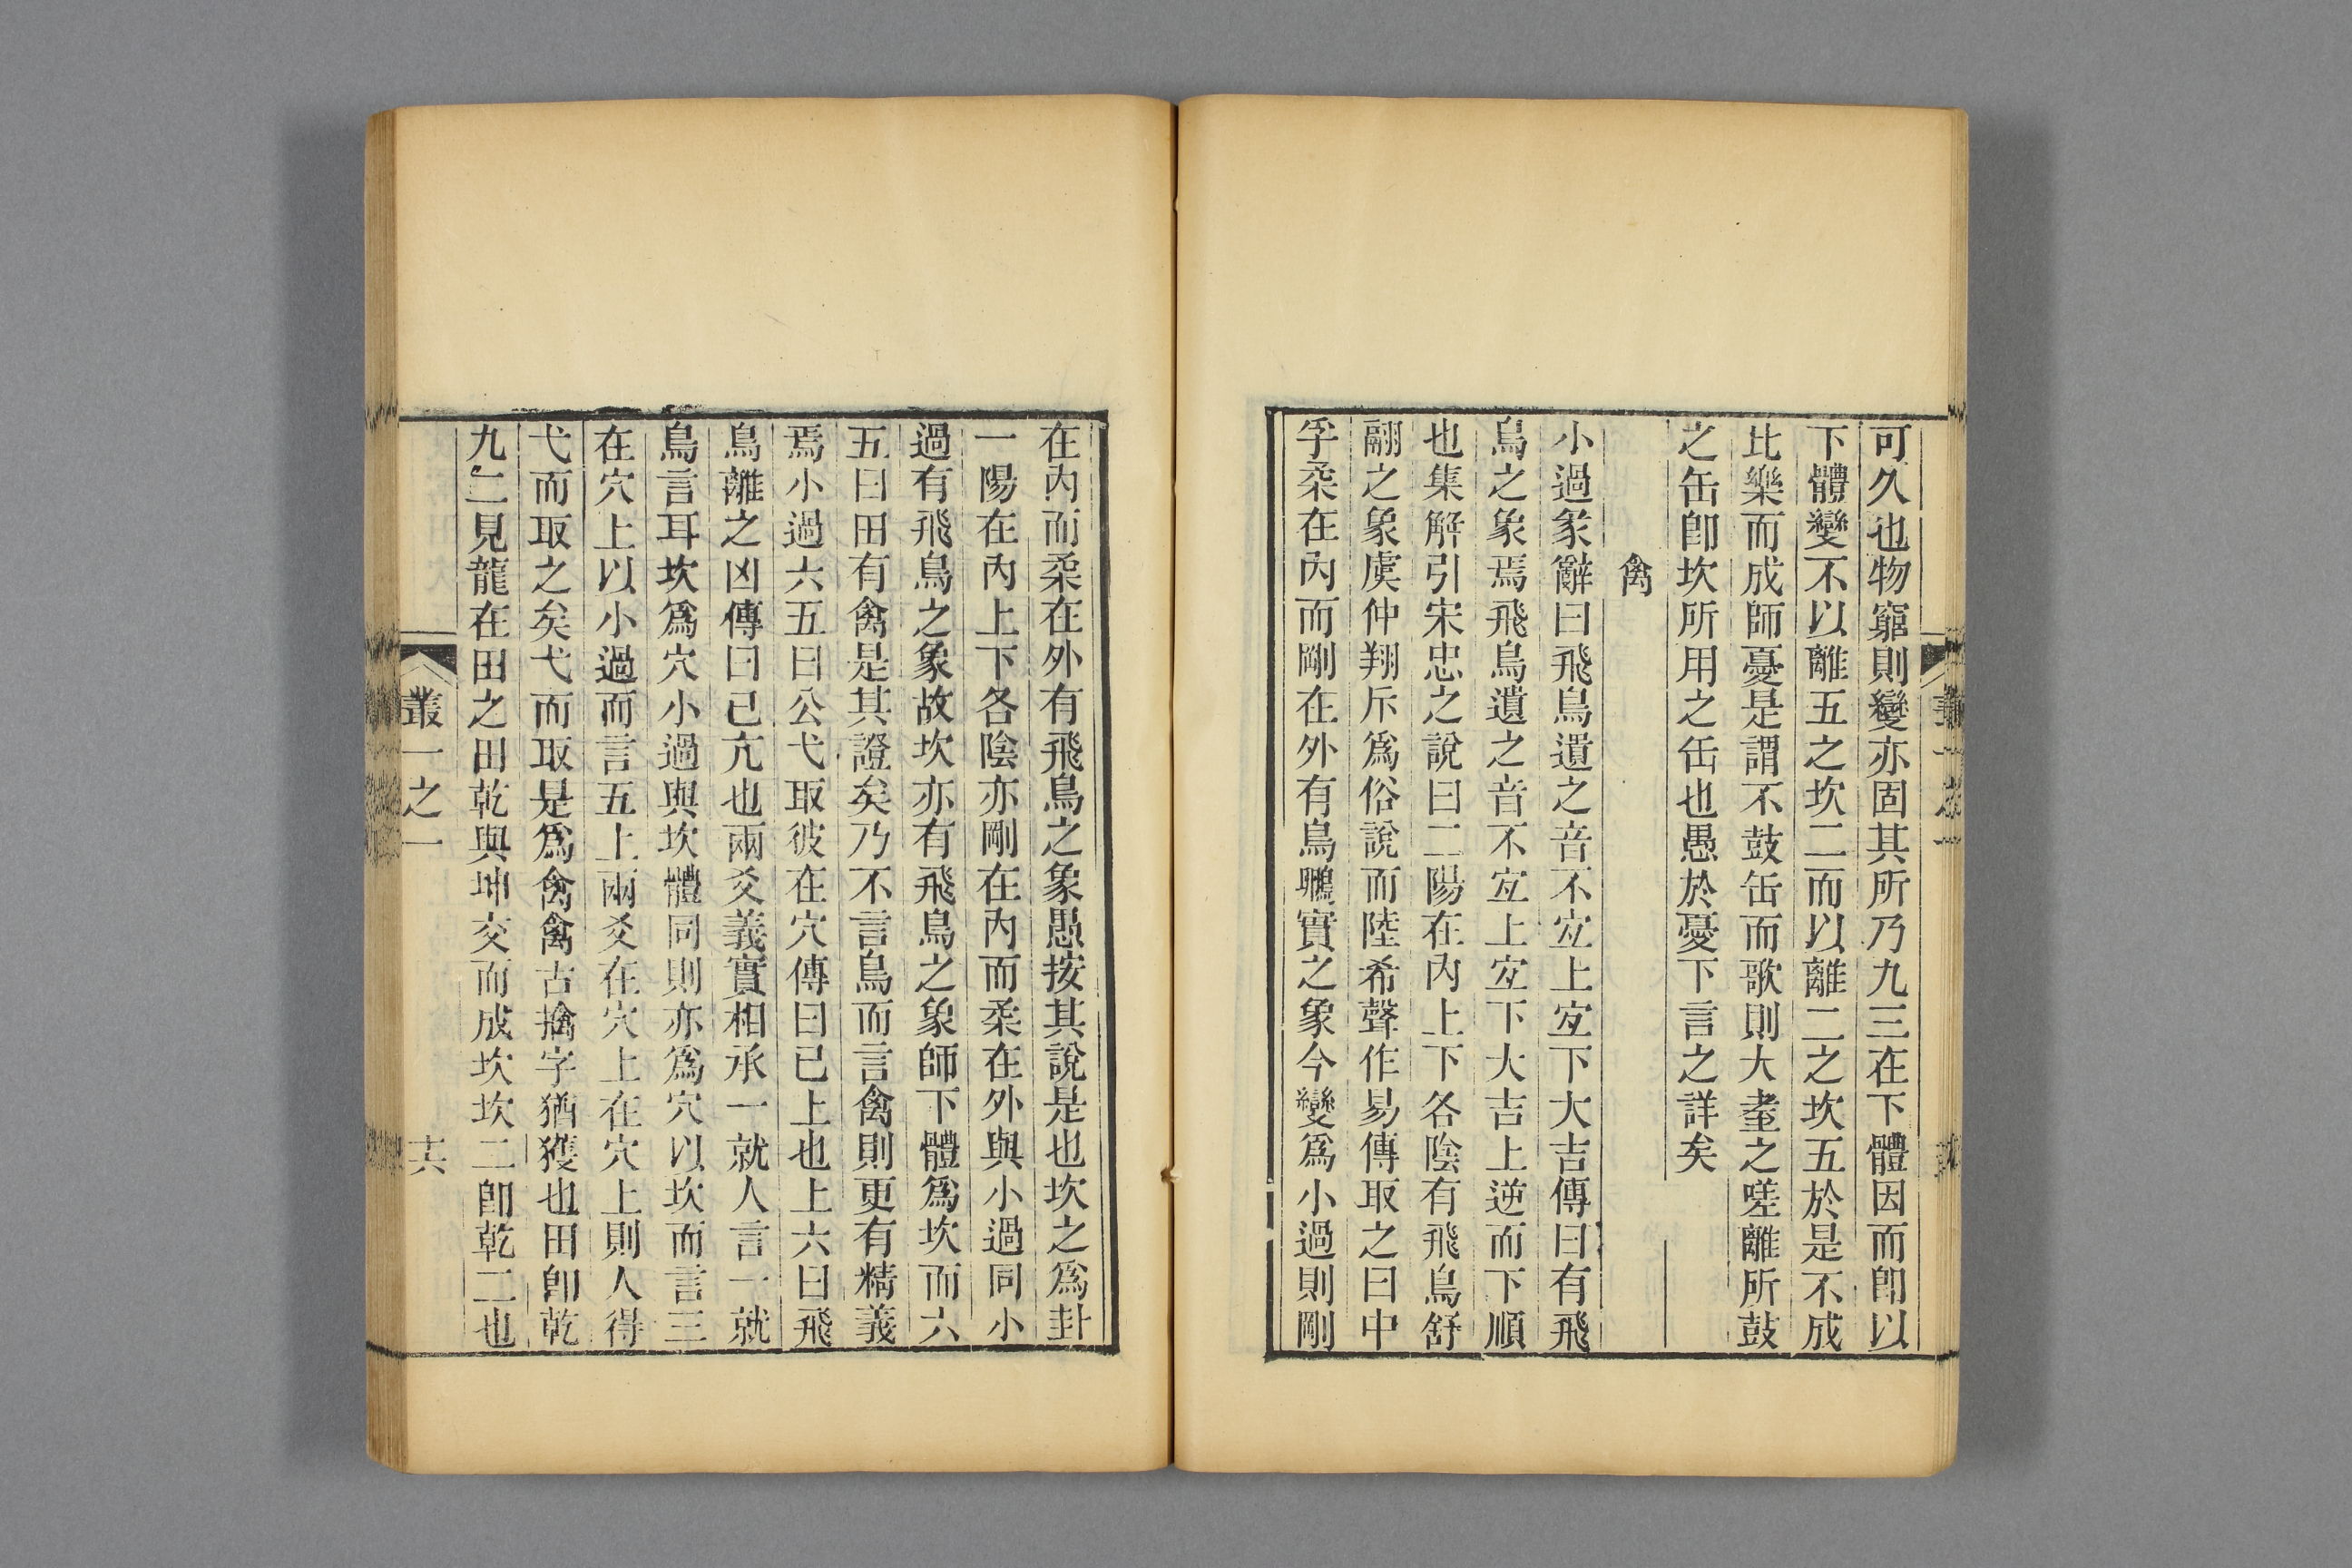 可久也物窮則變亦固其所乃九三在下體因而卽以
下體變不以離五之坎二而以離二之坎五於是不成
比樂而成師憂是謂不鼓缶而歌則大耋之嗟離所鼓
之缶卽坎所用之缶也愚於憂下言之詳矣
禽
小過彖辭曰飛鳥遺之音不宐上宐下大吉傳曰有飛
鳥之象焉飛鳥遺之音不宐上宐下大吉上逆而下順
也集解引宋忠之說曰二陽在內上下各陰有飛鳥舒
翮之象虞仲翔斥爲俗說而陸希聲作易傳取之曰中
孚柔在內而剛在外有鳥鷇實之象今變爲小過則剛
在內而柔在外有飛鳥之象愚按其說是也坎之爲卦
一陽在內上下各陰亦剛在內而柔在外與小過同小
過有飛鳥之象故坎亦有飛鳥之象師下體爲坎而六
五曰田有禽是其證矣乃不言鳥而言禽則更有精義
焉小過六五曰公弋取彼在穴傳曰已上也上六曰飛
鳥離之凶傳曰已亢也兩爻義實相承一就人言一就
鳥言耳坎爲穴小過與坎體同則亦爲穴以坎而言三
在穴上以小過而言五上兩爻在穴上在穴上則人得
弋而取之矣弋而取是爲禽禽古擒字猶獲也田卽乾
九二見龍在田之田乾與坤交而成坎坎二卽乾二也
叢一之一
十六